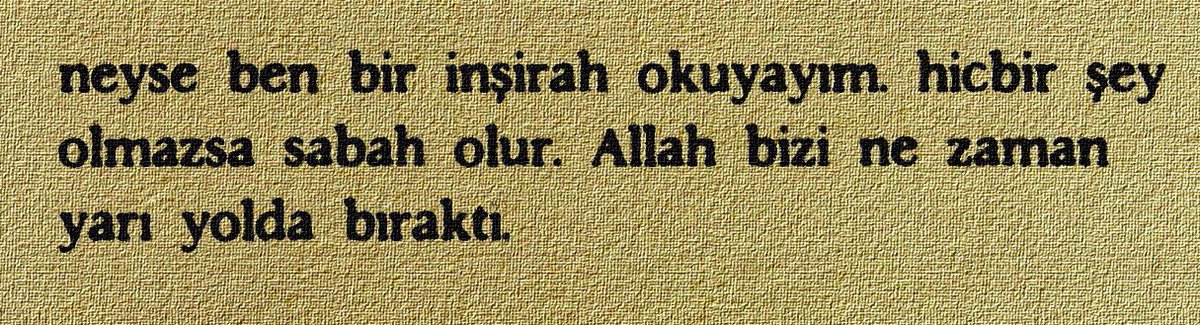 neyse ben bir inşirah okuyayım. hicbir şey
olmazsa sabah olur. Allah bizi ne zaman
yarı yolda bıraktı.